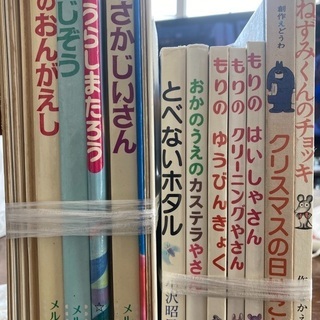 のおんがえし
じぞう
うらしまたろう
さかじいさん
メル
メル
メル
とべないホタル
沢昭
おかのうえのカステラやさ
もりの
ゆうびんきょく
もりの
クリーニングやさん
もりの
はいしゃさん
創作えどうわ
クリスマスの日
ねずみくんのチョッキ
作